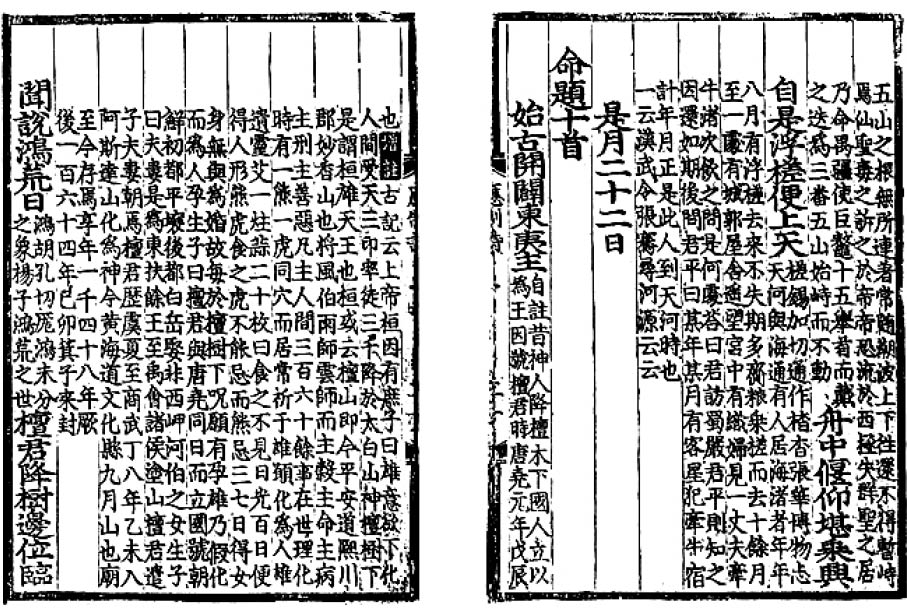 五山之根無所連著常隨潮波上下往還不得暫峙
焉仙聖毒之訴於帝帝恐流於西極失群聖之居
乃命禺疆使巨鼇十五擧首而戴
之迭爲三番五山始峙而不動
舟中偃仰堪乘興
自是浮槎便上天
槎鋤加切通作楂查張華博物志
天河與海通有人居海渚者年年
八月有浮槎去來不失期多齎粮乗槎而去十餘月
至一處有城郭屋舍遥望宮中有織婦見一丈夫牽
牛渚次飮之問是何處答曰君訪蜀嚴君平則知之
因還如期後問君平曰某年某月有客星犯牽牛宿
計年月正是此人到天河時也
一云漢武令張騫尋河源云云
是月二十二日
命題十首
始古開闢東夷主
自註昔神人降檀木下國人立以
爲王因號檀君時唐堯元年戊辰
也增註古記云上帝桓因有庶子曰雄意欲下化
人間受天三印率徒三千降於太白山神檀樹下
是謂桓雄天王也桓或云檀山即今平安道熙川
郡妙香山也將風伯雨師雲師而主穀主命主病
主刑主善惡凡主人間三百六十餘事在世理化
時有一熊一虎同穴而居常祈于雄願化爲人雄
遺靈艾一炷蒜二十枚曰食之不見日光百日便
得人形熊虎食之虎不能忌而熊忌三七日得女
身無與爲婚故每於檀樹下呪願有孕雄乃假化
而爲人孕生子曰檀君與唐堯同日而立國號朝
鮮初都平壤後都白岳娶非西岬河伯之女生子
曰夫婁是爲東扶餘王至禹會諸侯塗山檀君遣
子夫婁朝焉檀君歷虞夏至商武丁八年乙未入
阿斯達山化爲神今黃海道文化縣九月山也廟
至今存焉享年一千四十八年厥
後一百六十四年己卯箕子來封
聞說鴻荒日
鴻胡孔切厖鴻未分
之象揚子鴻荒之世
檀君降樹邊位臨